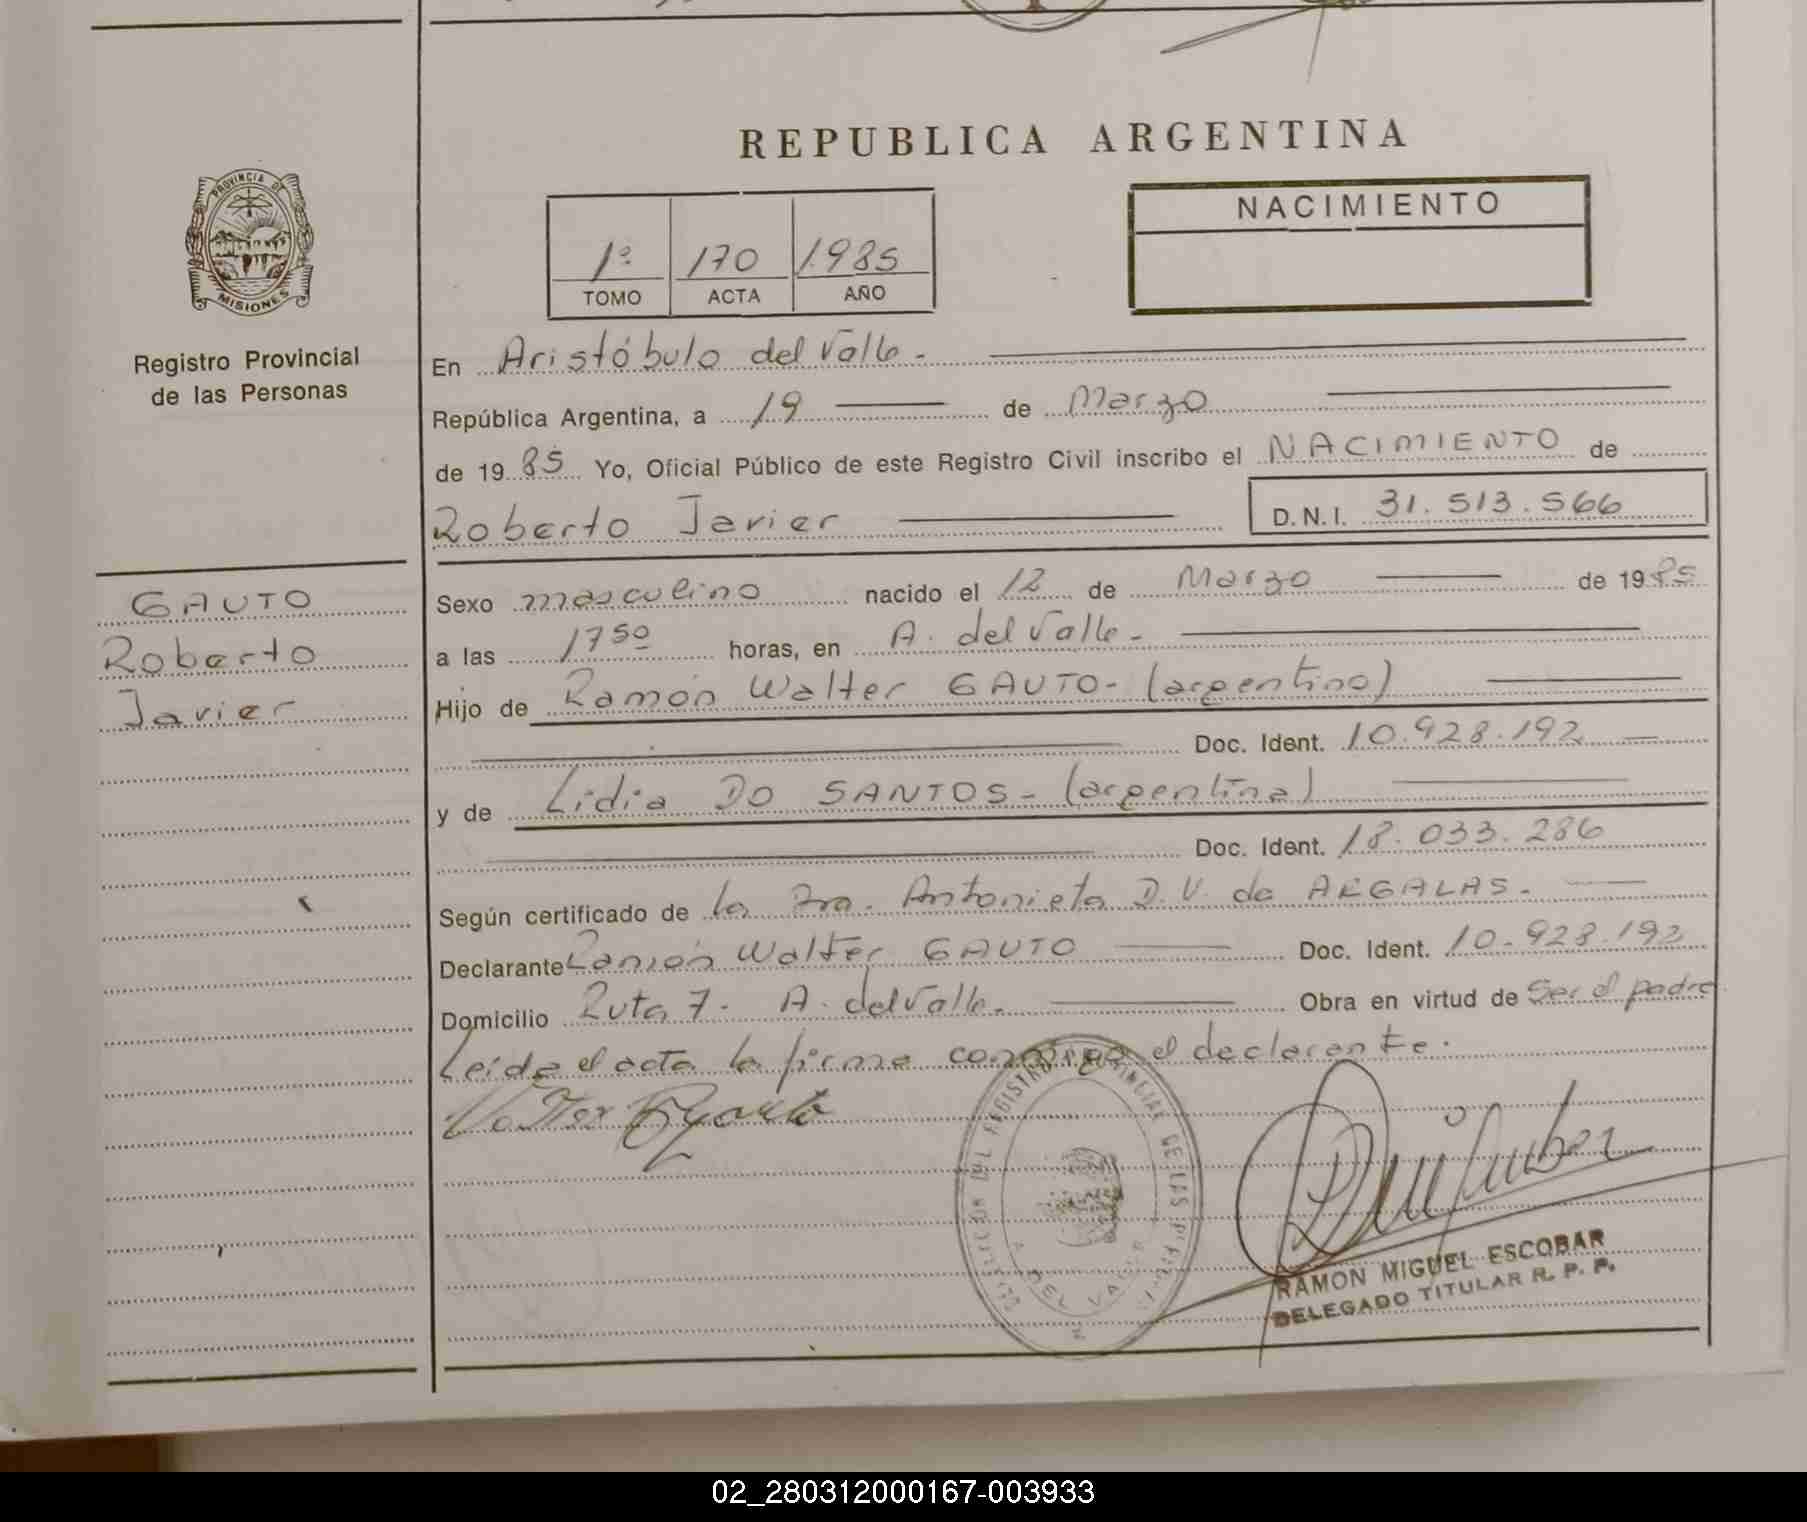 REPUBLICA ARGENTINA
PROVINCIA DE
MISIONES
Registro Provincial
de las Personas
1º 170 1985
TOMO ACTA AÑO
NACIMIENTO
En Aristóbulo del Valle.
República Argentina, a 19 de Marzo
de 1985 Yo, Oficial Público de este Registro Civil inscribo el NACIMIENTO de
Roberto Javier D.N.I. 31.513.566
GAUTO
Roberto
Javier
Sexo masculino nacido el 12 de Marzo de 1985
a las 17 50 horas, en A. del Valle.
Hijo de Ramón Walter GAUTO- (argentino)
Doc. Ident. 10.928.192
y de Lidia DO SANTOS- (argentina)
Doc. Ident. 18.033.286
Según certificado de la Dra. Antonieta D.V. de ARGALAS.
Declarante Ramón Walter GAUTO Doc. Ident. 10.928.192
Domicilio Ruta 7. A. del Valle. Obra en virtud de Ser el padre
Leída el acta la firma conmigo el declarante.
Walter Gauto
REGISTRO PROVINCIAL DE LAS
A. DEL VALLE
RAMON MIGUEL ESCOBAR
DELEGADO TITULAR R. P. P.
02_280312000167-003933